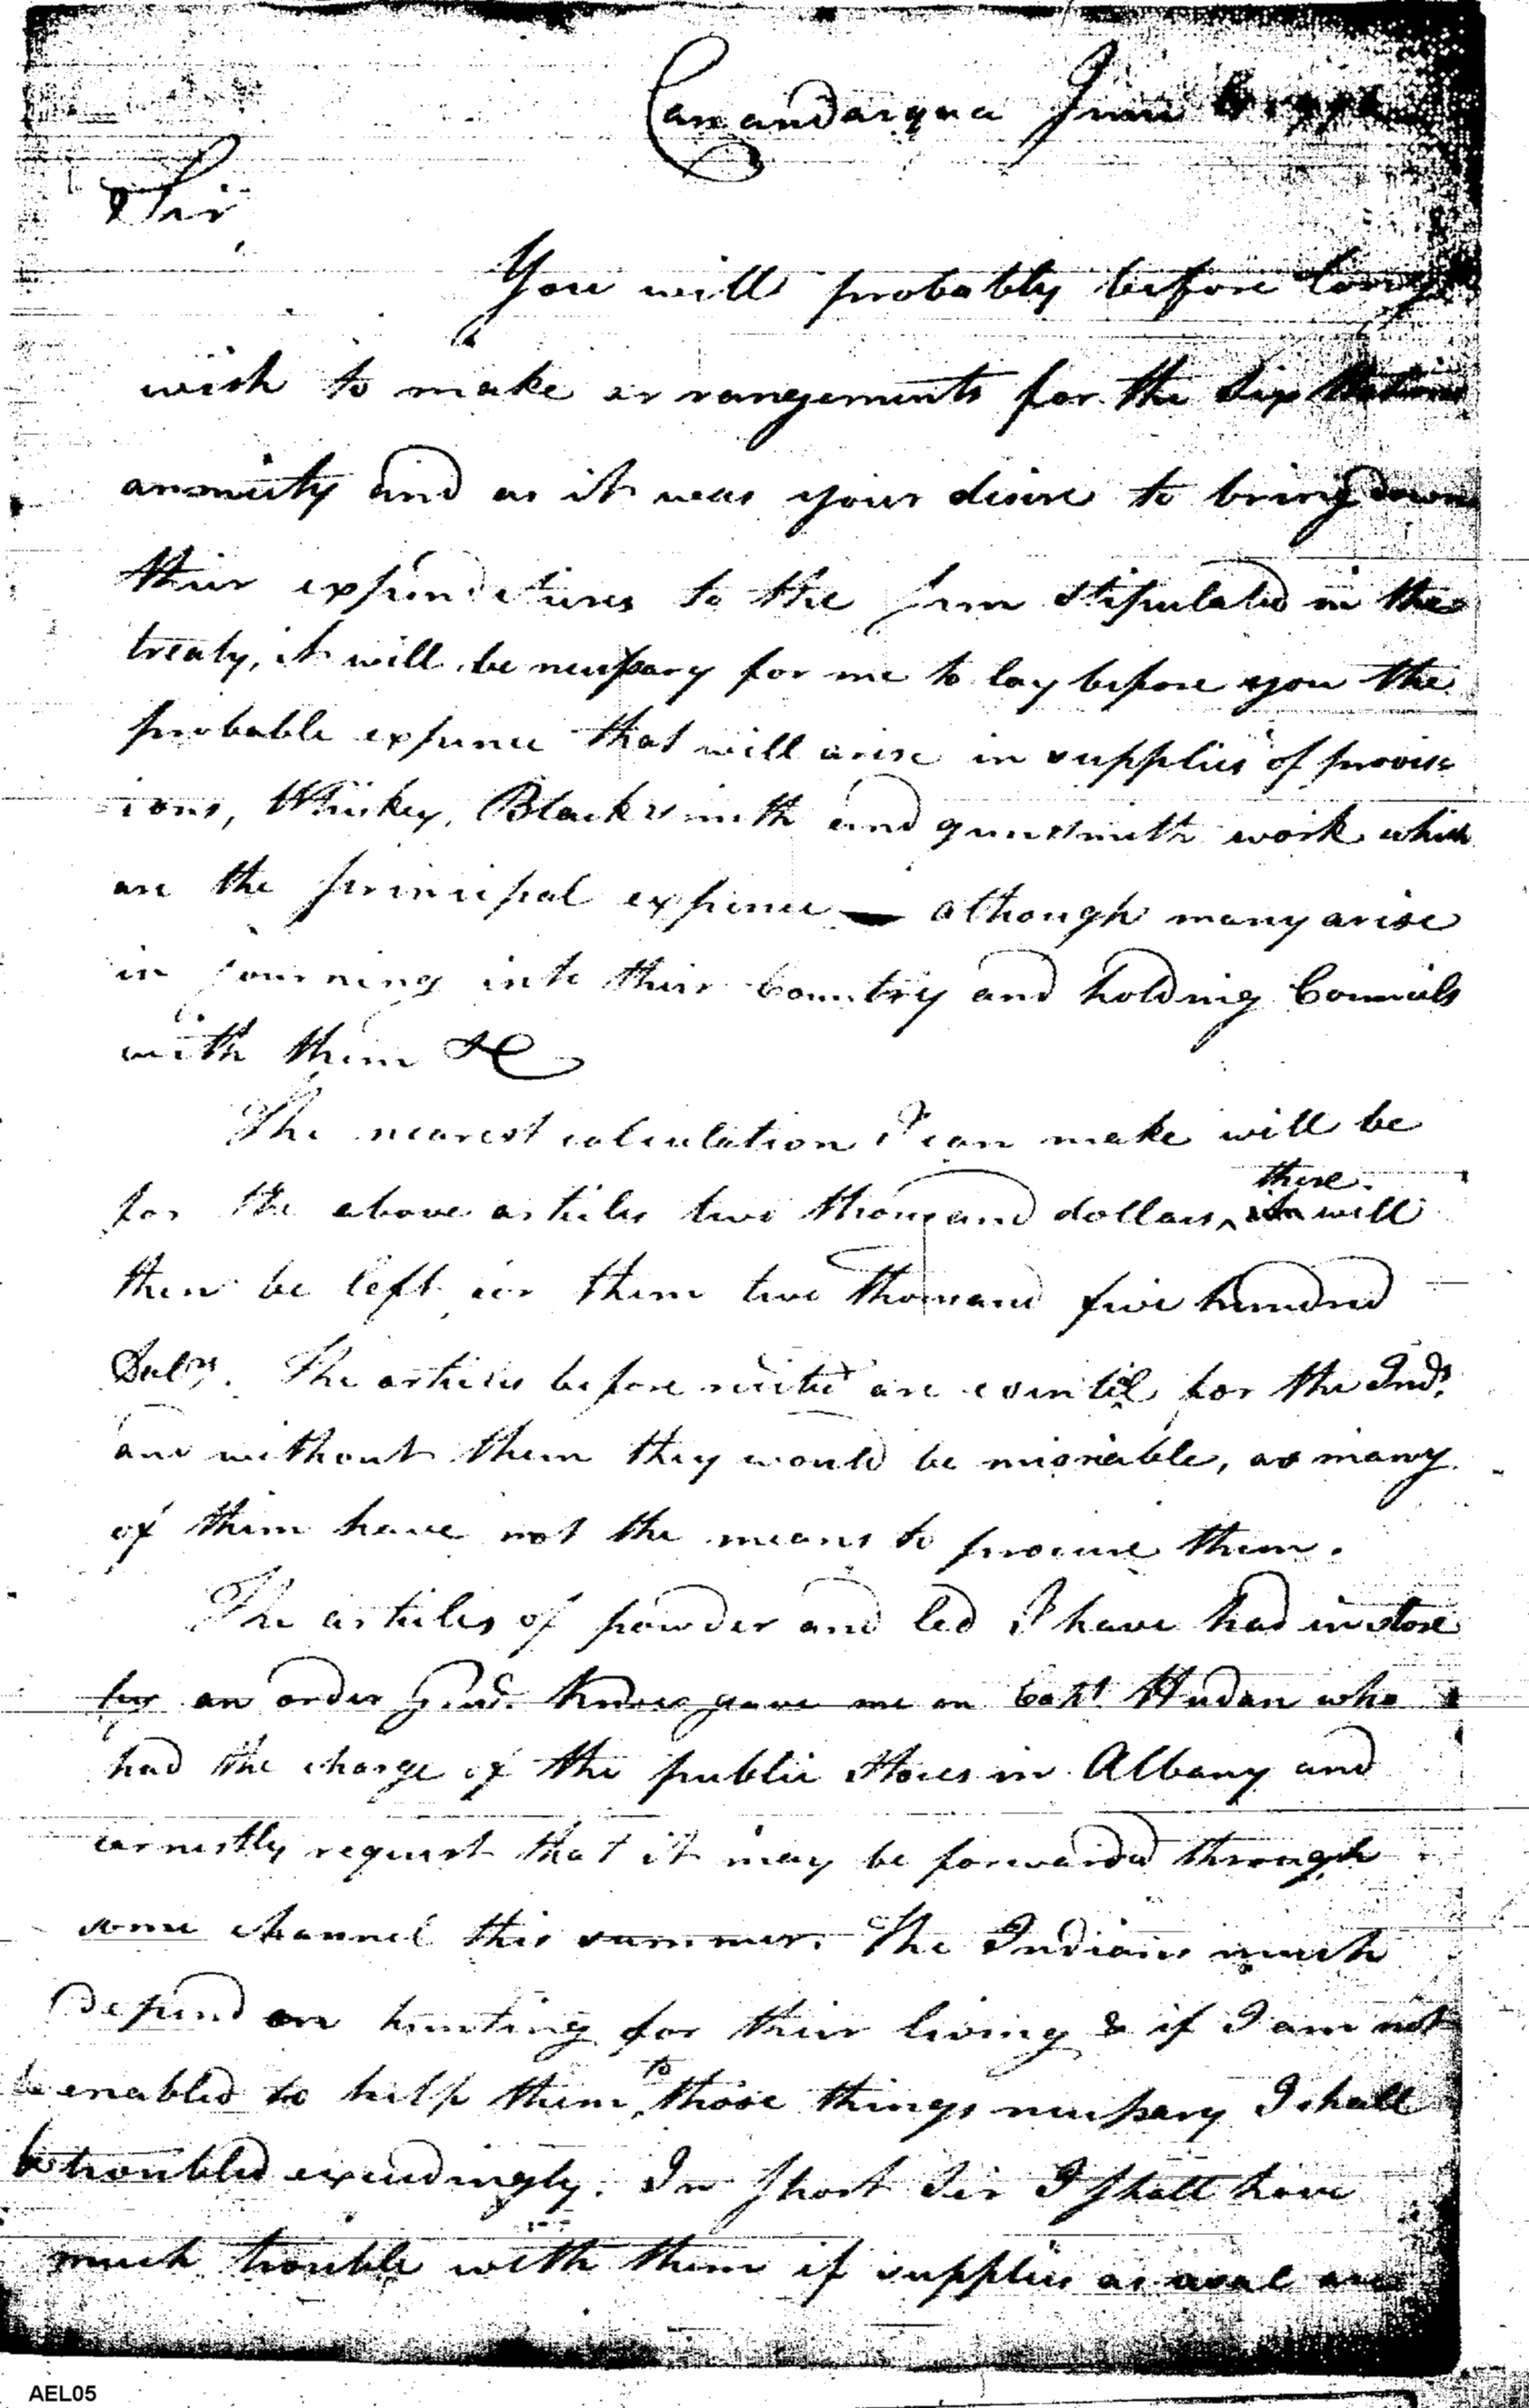 Canandarqua June
Sir
You will probably before long
wish to make arrangements for the Six Nations
annuity and as it was your desire to bring down
their expenditures to the sum stipulated in the
treaty, it will be necessary for me to lay before you the
probable expence that will arise in supplies of provis
ions, Whiskey, Blacksmith and gunsmith work which
are the principal expence — although many arise
in journing into their Country and holding Councils
with them &c
The nearest calculation I can make will be
there
for the above articles two thousand dollars, will
then be left for them two thousand five hundred
The articles before recited are esentil for the Inds.
and without them they would be misreable, as many
of them have not the means to procure them.
The articles of powder and led I have had in store
by an order Genl. Knox gave me on Capt. Hudan who
had the charge of the public Stores in Albany and
earnestly request that it may be forwarded through
some channel this summer. The Indians much
depend on hunting for their living & if I am not
to
be enabled to help them those things necessary I shall
be troubled exceedingly. In short Sir I shall have
much trouble with them if supplies as usal are
AEL05